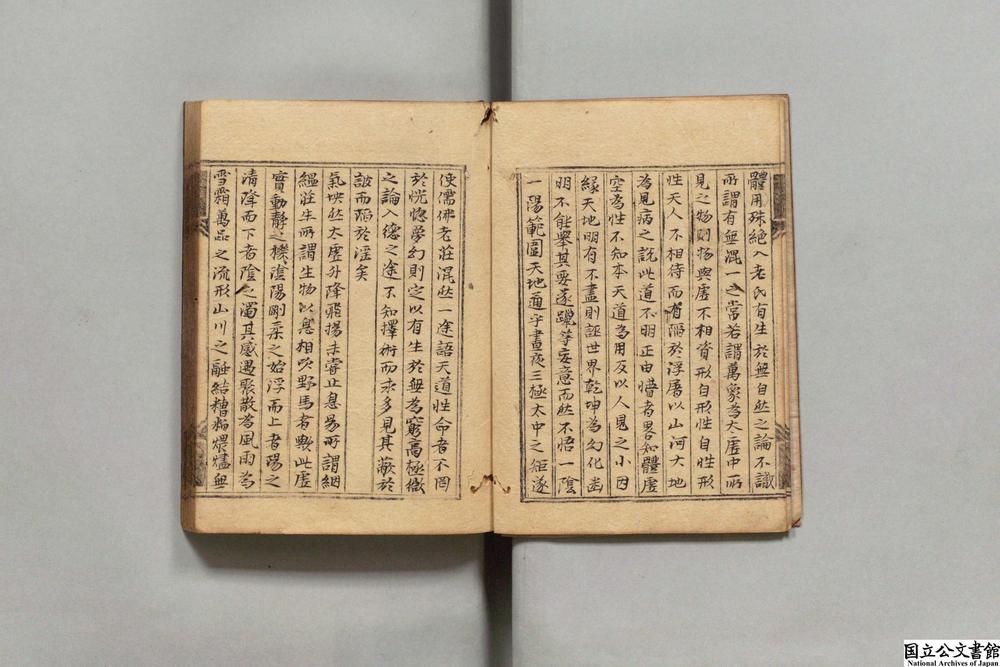 體用殊絶入老氏有生於無自然之論不識
所謂有無混一之常若謂萬象為太虚中所
見之物則物與虚不相資形自形性自性形
性天人不相待而有陥於浮屠以山河大地
為見病之說此道不明正由懵者畧知體虚
空為性不知本天道為用反以人見之小因
縁天地明有不盡則誣世界乾坤為幻化幽
明不能舉其要遂躐等妄意而然不悟一陰
一陽範圍天地通乎晝夜三極大中之矩遂
使儒佛老莊混然一途語天道性命者不罔
於恍惚夢幻則定以有生於無為窮高極微
之論入德之途不知擇術而求多見其蔽於
詖而陥於淫矣
氣坱然太虚升降飛揚未嘗止息易所謂絪
緼莊生所謂生物以息相吹野馬者歟此虚
實動静之機陰陽剛柔之始浮而上者陽之
清降而下者陰之濁其感遇聚散為風雨為
雪霜萬品之流形山川之融結糟粕煨燼無
国立公文書館
National Archives of Japan